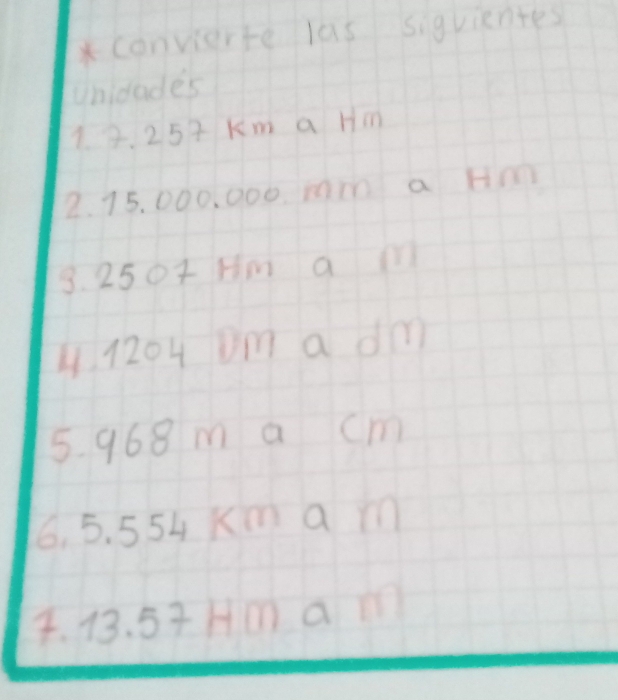 * convierte las siguientes
unidades
1. 7.257 Km a Hm
2. 15.000.000 mm a Hm
3. 2507 Hm a m
4. 1204 Dm a dm
5. 968 m a cm
6. 5.554 Km a m
7. 13.57 Hm a m